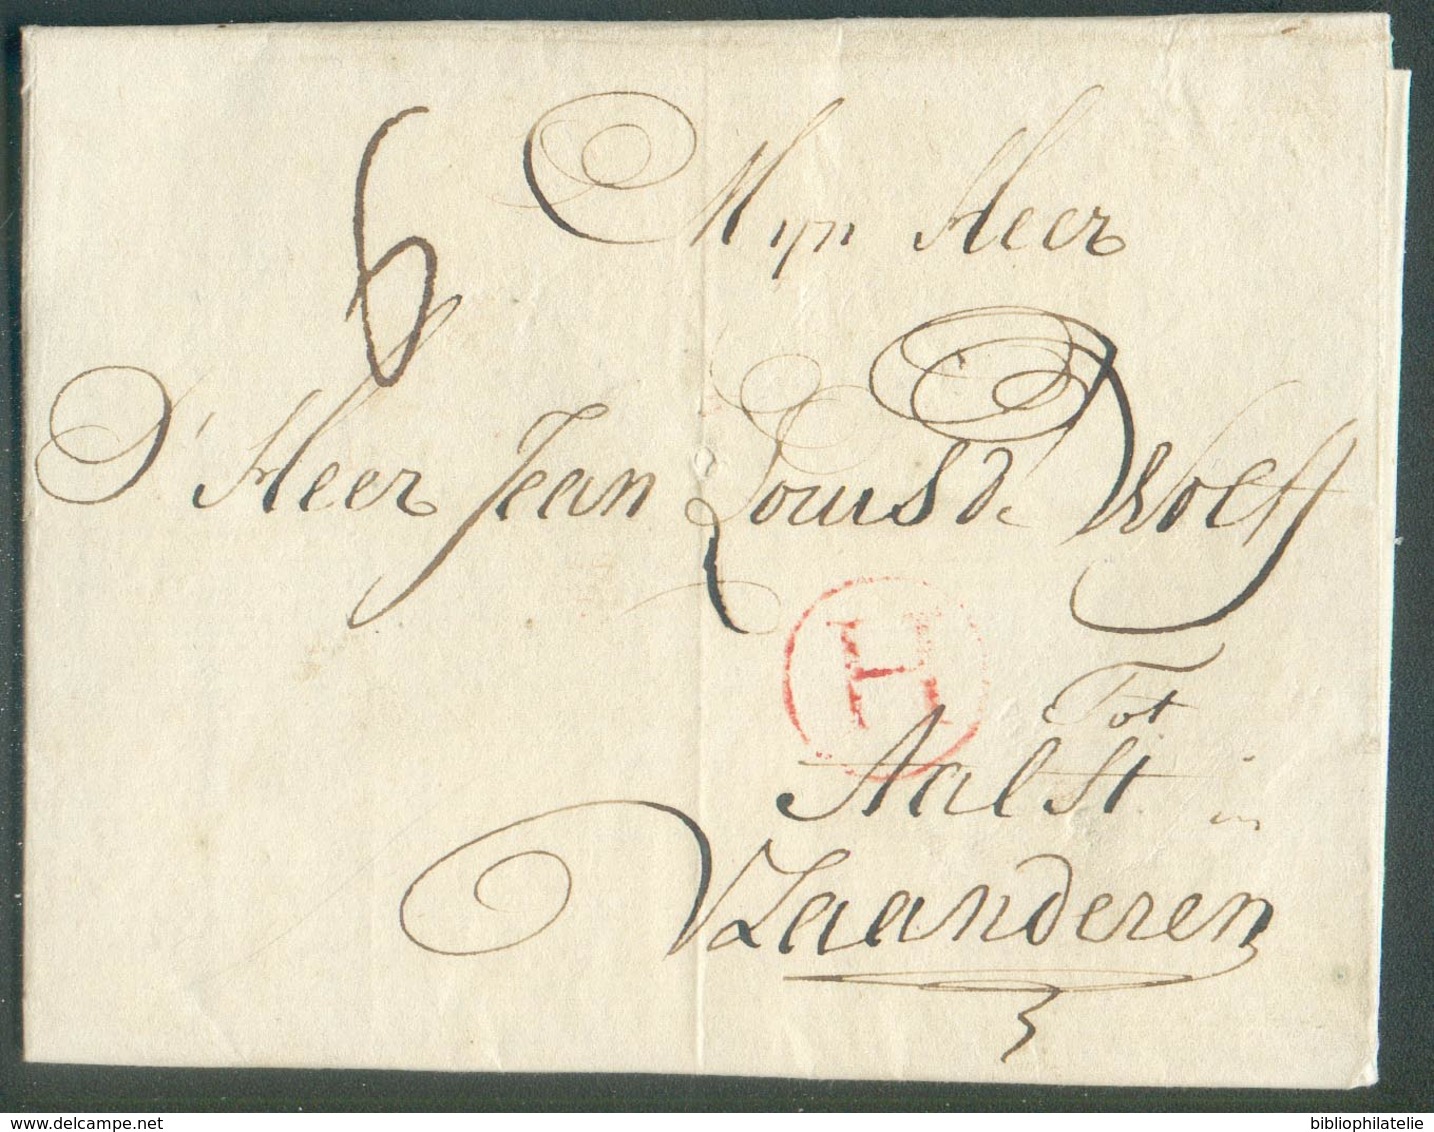 6
Mijn Heer
D' Heer Jean Louis de Wolff
H
Tot
Aalst in
Vlaanderen
bibliophilatelie